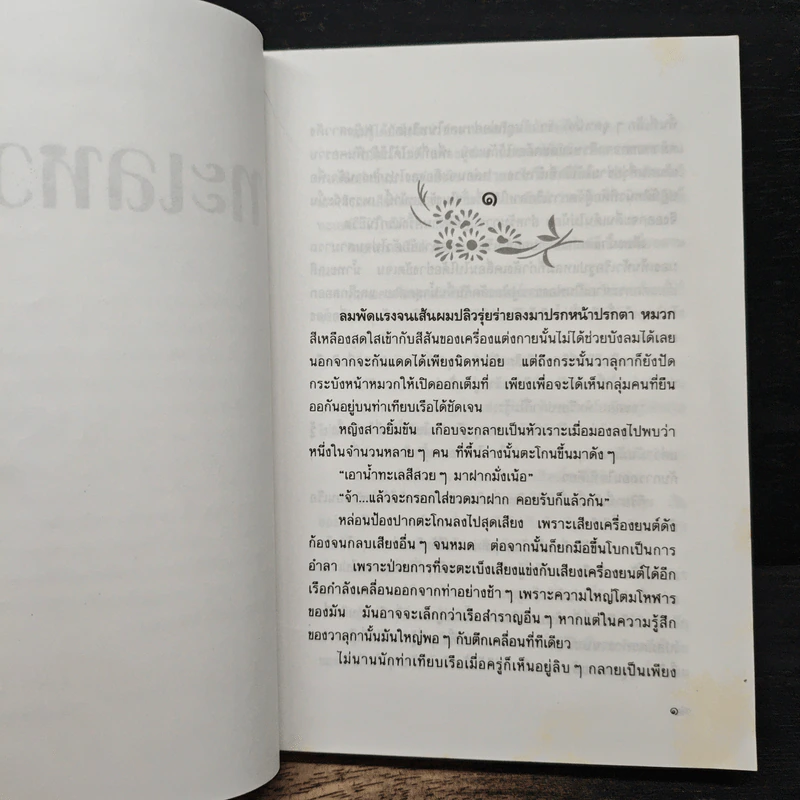 ทะเลหว
๑
ลมพัดแรงจนเส้นผมปลิวรุ่ยร่ายลงมาปรกหน้าปรกตา หมวก
สีเหลืองสดใสเข้ากับสีสันของเครื่องแต่งกายนั้นไม่ได้ช่วยบังลมได้เลย
นอกจากจะกันแดดได้เพียงนิดหน่อย แต่ถึงกระนั้นวาลุกาก็ยังปัด
กระบังหน้าหมวกให้เปิดออกเต็มที่ เพียงเพื่อจะได้เห็นกลุ่มคนที่ยืน
ออกันอยู่บนท่าเทียบเรือได้ชัดเจน
หญิงสาวยิ้มขัน เกือบจะกลายเป็นหัวเราะเมื่อมองลงไปพบว่า
หนึ่งในจำนวนหลาย ๆ คน ที่พื้นล่างนั้นตะโกนขึ้นมาดัง ๆ
“เอาน้ำทะเลสีสวย ๆ มาฝากมั่งเน้อ”
“จ้า...แล้วจะกรอกใส่ขวดมาฝาก คอยรับก็แล้วกัน”
หล่อนป้องปากตะโกนลงไปสุดเสียง เพราะเสียงเครื่องยนต์ดัง
ก้องจนกลบเสียงอื่น ๆ จนหมด ต่อจากนั้นก็ยกมือขึ้นโบกเป็นการ
อำลา เพราะป่วยการที่จะตะเบ็งเสียงแข่งกับเสียงเครื่องยนต์ได้อีก
เรือกำลังเคลื่อนออกจากท่าอย่างช้า ๆ เพราะความใหญ่โตมโหฬาร
ของมัน มันอาจจะเล็กกว่าเรือสำราญอื่น ๆ หากแต่ในความรู้สึก
ของวาลุกานั้นมันใหญ่พอ ๆ กับตึกเคลื่อนที่ทีเดียว
ไม่นานนักท่าเทียบเรือเมื่อครู่ก็เห็นอยู่ลิบ ๆ กลายเป็นเพียง
๑